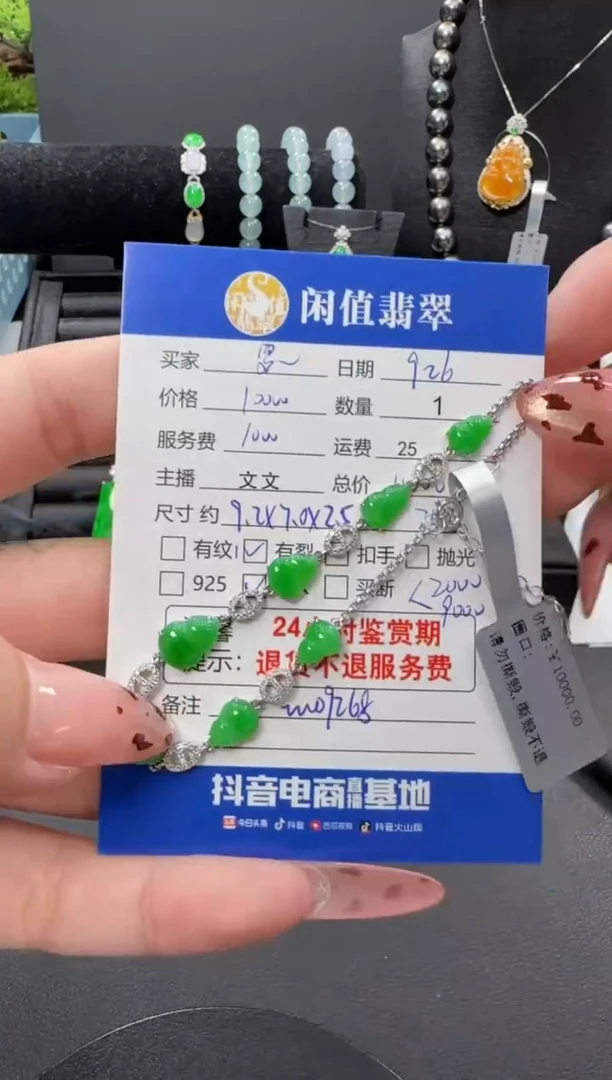 闲值翡翠
买家 日期 926
价格 10000 数量 1
服务费 1000 运费 25
主播 文文 总价
尺寸 约 9.2X7.0X2.5
有纹 有裂 扣手 抛光
925 买断 <2000
9000
24小时鉴赏期
提示: 退货不退服务费
备注
价格:¥10000.00
圈口:
请勿撕毁,撕毁不退
抖音电商直播基地
今日头条 抖音 西瓜视频 抖音火山版